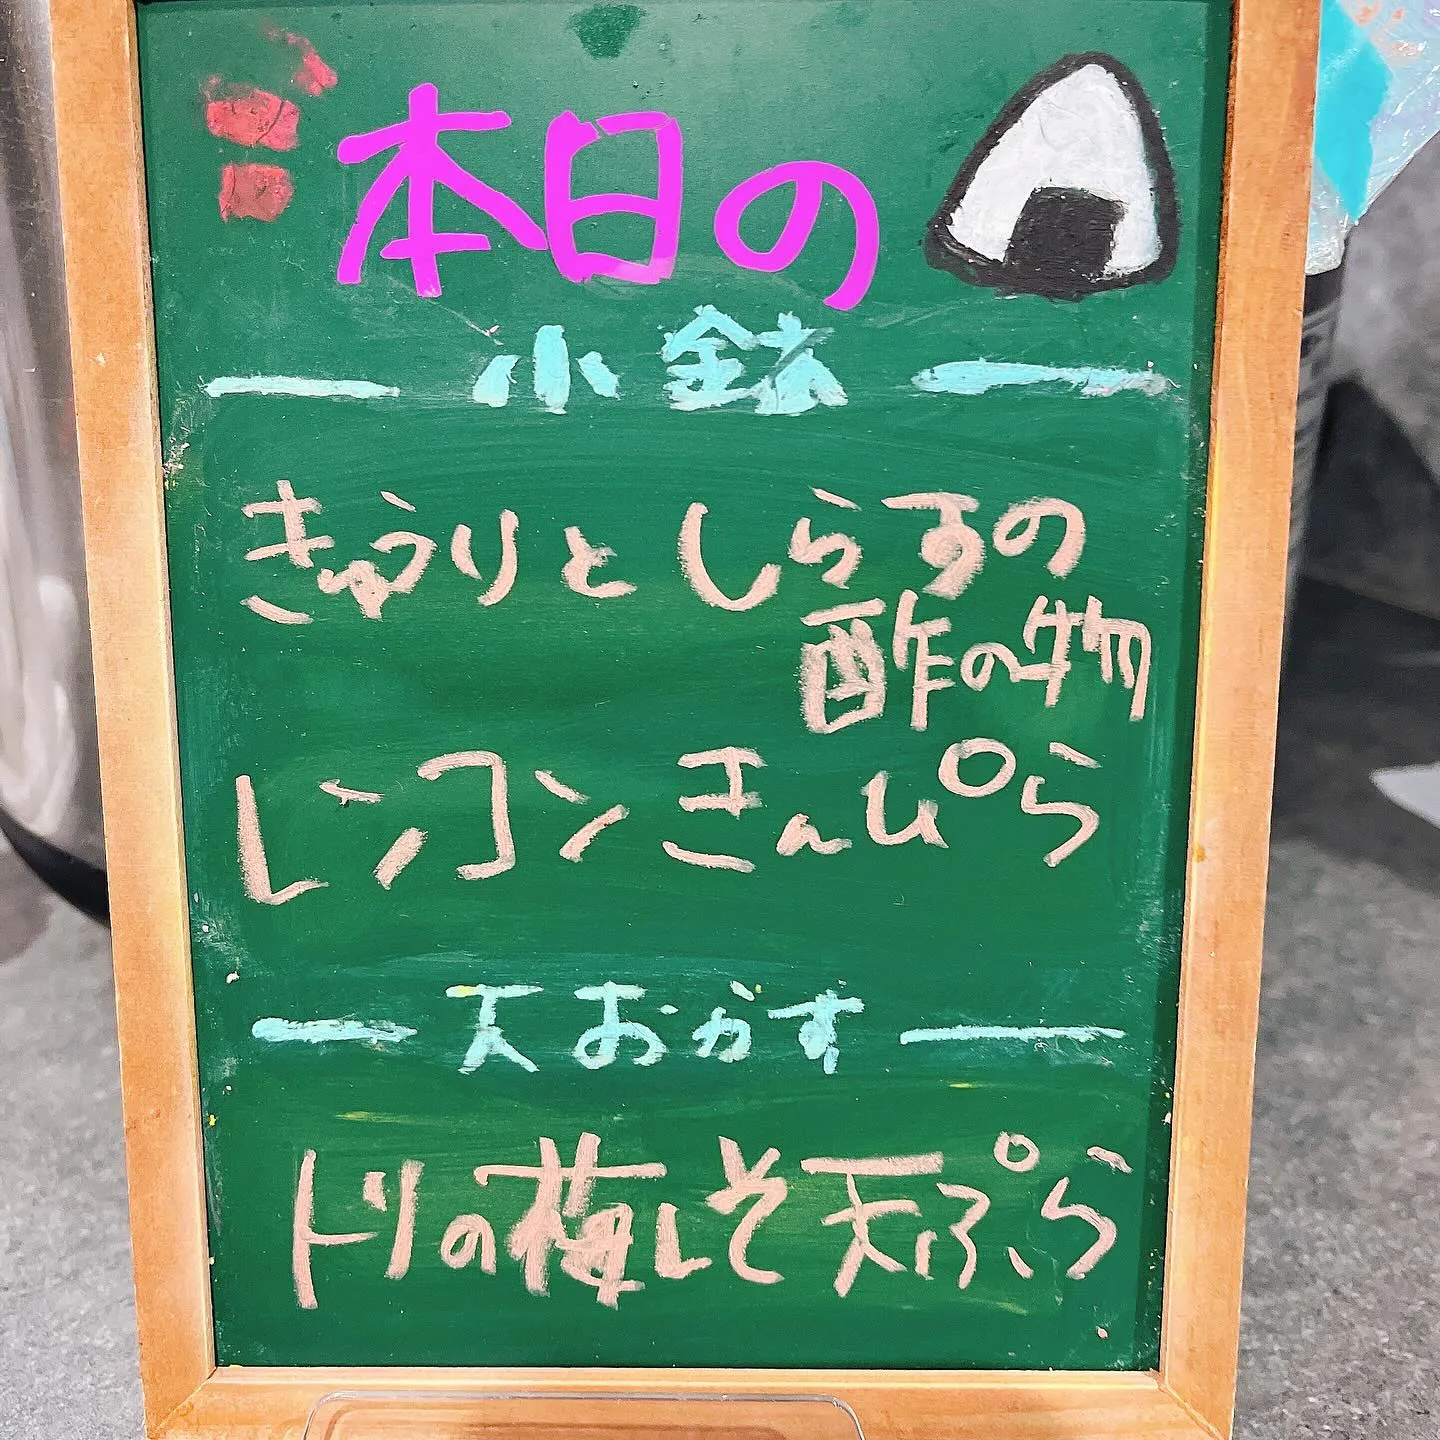 本日の
小鉢
きゅうりとしらすの
酢の物
レンコンきんぴら
天おかず
トリの梅しそ天ぷら